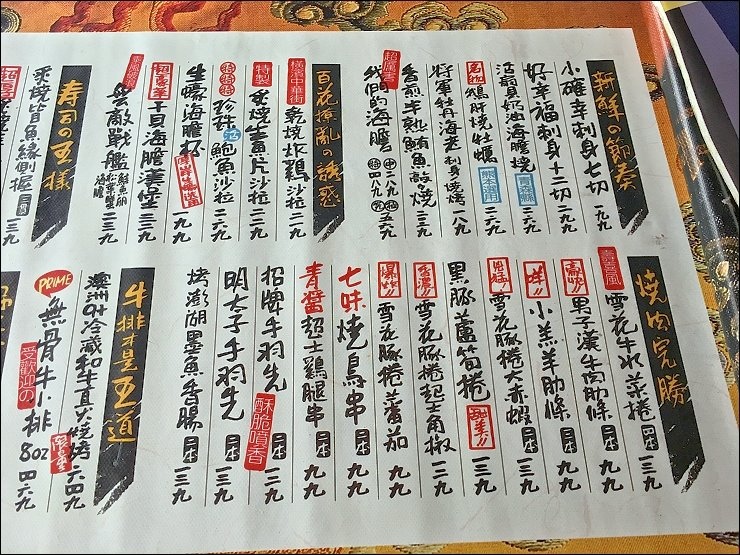 新鮮の節奏
小確幸刺身七切 一九九
好幸福刺身十二切 一九九
活扇貝奶油海膽燒 二六九
名物 鵝肝燒牡蠣 二六九
將軍牡丹海老刺身/燒烤 一八九
香煎半熟鮪魚敵燒 二三九
超厲害 我們的海膽 中 二八九 特 四九九 五六九
百花撩亂の誘惑
橫濱中華街 乾燒炸雞沙拉 二一九
特製 炙燒生魚片沙拉 二二九
珍珠 活 鮑魚沙拉 二六九
生蠔海膽杯 一九九
招喜羊 干貝海膽漢堡 二三九
乘風破浪 無敵戰艦 海膽 三三九
寿司の王様
炙燒比目魚緣側握 二貫 一三九
燒肉完勝
壽喜風 雪花牛水菜捲 四本 一三九
壽吹!! 男子漢牛肉肋條 二本 九九
咩!! 小羔羊肋條 二本 一三九
雪花豚捲大赤蝦 二本 一三九
黑豚蘆筍捲 一三九
香濃!! 雪花豚捲起士角椒 一二九
爆炸!! 雪花豚捲蕃茄 九九
七味燒鳥串 二本 九九
青醬起士雞腿串 二本 九九
招牌手羽先 酥脆噴香 二本 一三九
明太子手羽先 二本 一三九
烤澎湖墨魚香腸 二本 一三九
牛排才是王道
澳洲9+冷藏和牛直火燒烤 六四九
PRIME 無骨牛小排 8oz 四六九
受歡迎の